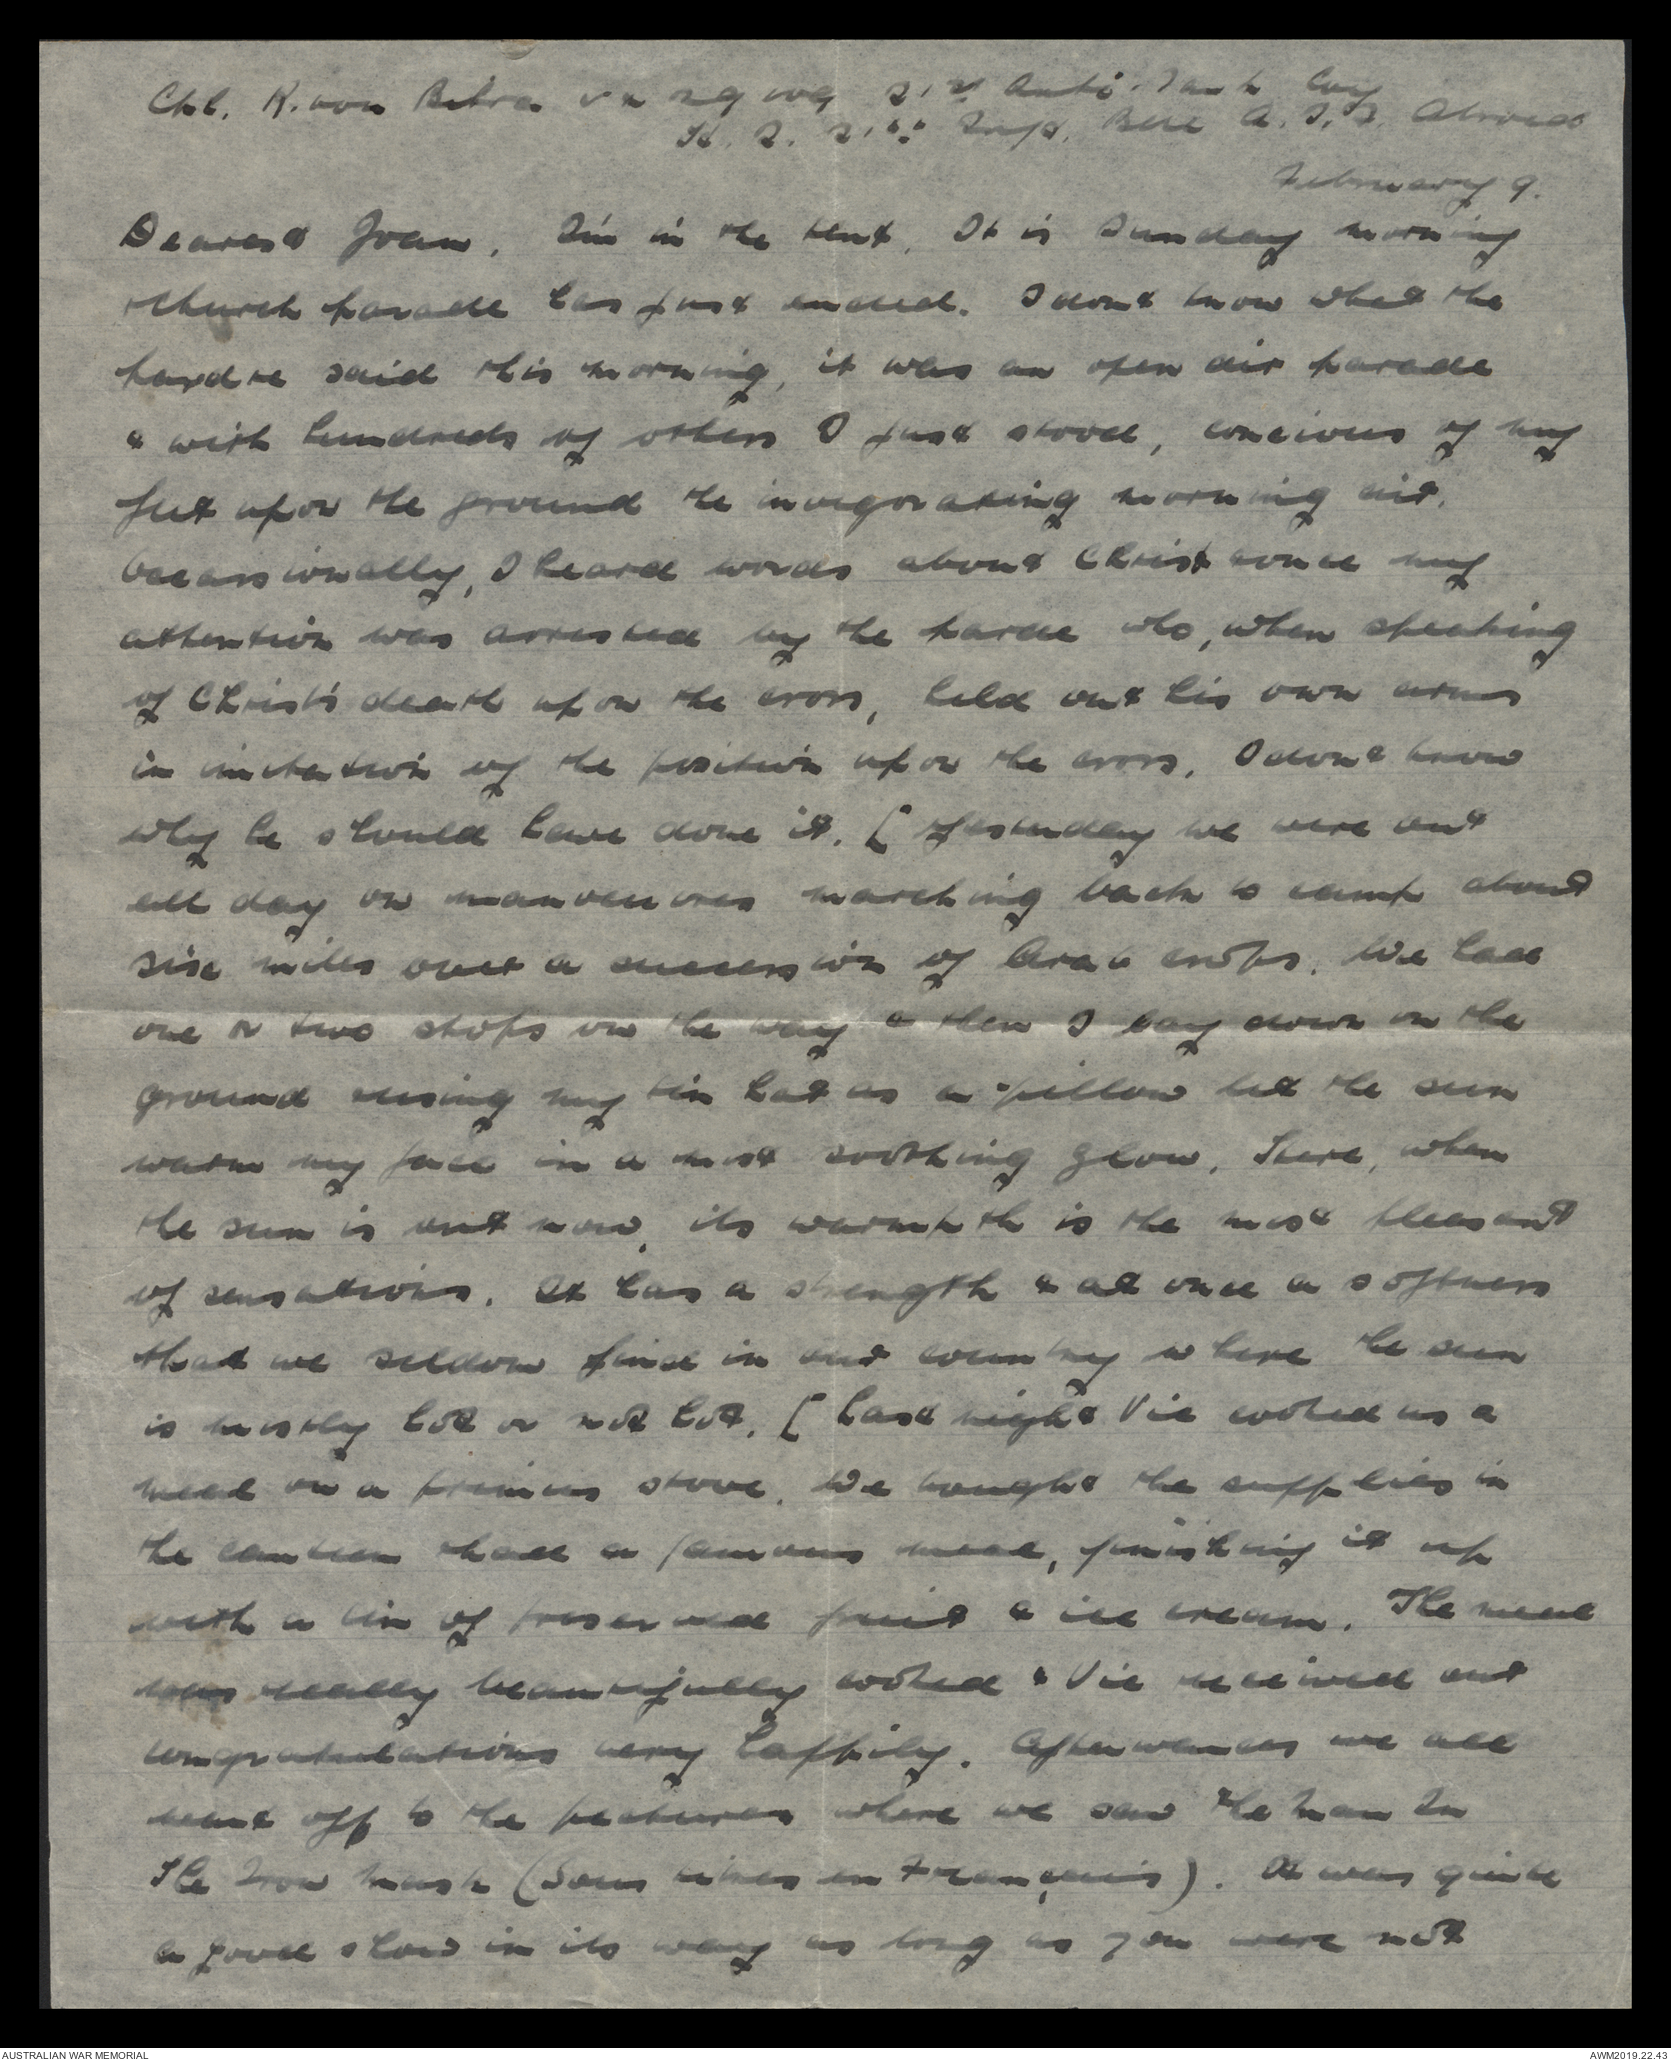 Cpl. K. von Bibra VX 29009 21st Anti-Tank Coy
H.Q. 21st Inf. Bde A.I.F. Abroad
February 9.
Dearest Joan, I'm in the tent. It is Sunday morning
& church parade has just ended. I dont know what the
padre said this morning, it was an open air parade
& with hundreds of others I just stood, concious of my
feet upon the ground the invigorating morning air.
Occassionally, I heard words about Christ & once my
attention was arrested by the padre who, when speaking
of Christ's death upon the cross, held out his own arms
in imitation of the position upon the cross. I dont know
why he should have done it. [ Yesterday we were out
all day on manoeuvres marching back to camp about
six miles over a succession of Arab crops. We had
one or two stops on the way & then I lay down on the
ground using my tin hat as a pillow let the sun
warm my face in a most soothing glow. Here, when
the sun is out now, its warmpth is the most pleasant
of sensations. It has a strength & at once a softness
that we seldom find in our country where the sun
is mostly hot or not hot. [ Last night Vic cooked us a
meal on a primus stove. We bought the supplies in
the canteen & had a famous meal, finishing it up
with a tin of preserved fruit & ice cream. The meal
was really beautifully cooked & Vic received our
congratulations very happily. Afterwards we all
went off to the pictures where we saw The Man In
The Iron Mask (Sous titres en Français). It was quite
a good show in its way as long as you were not
AUSTRALIAN WAR MEMORIAL
AWM2019.22.43